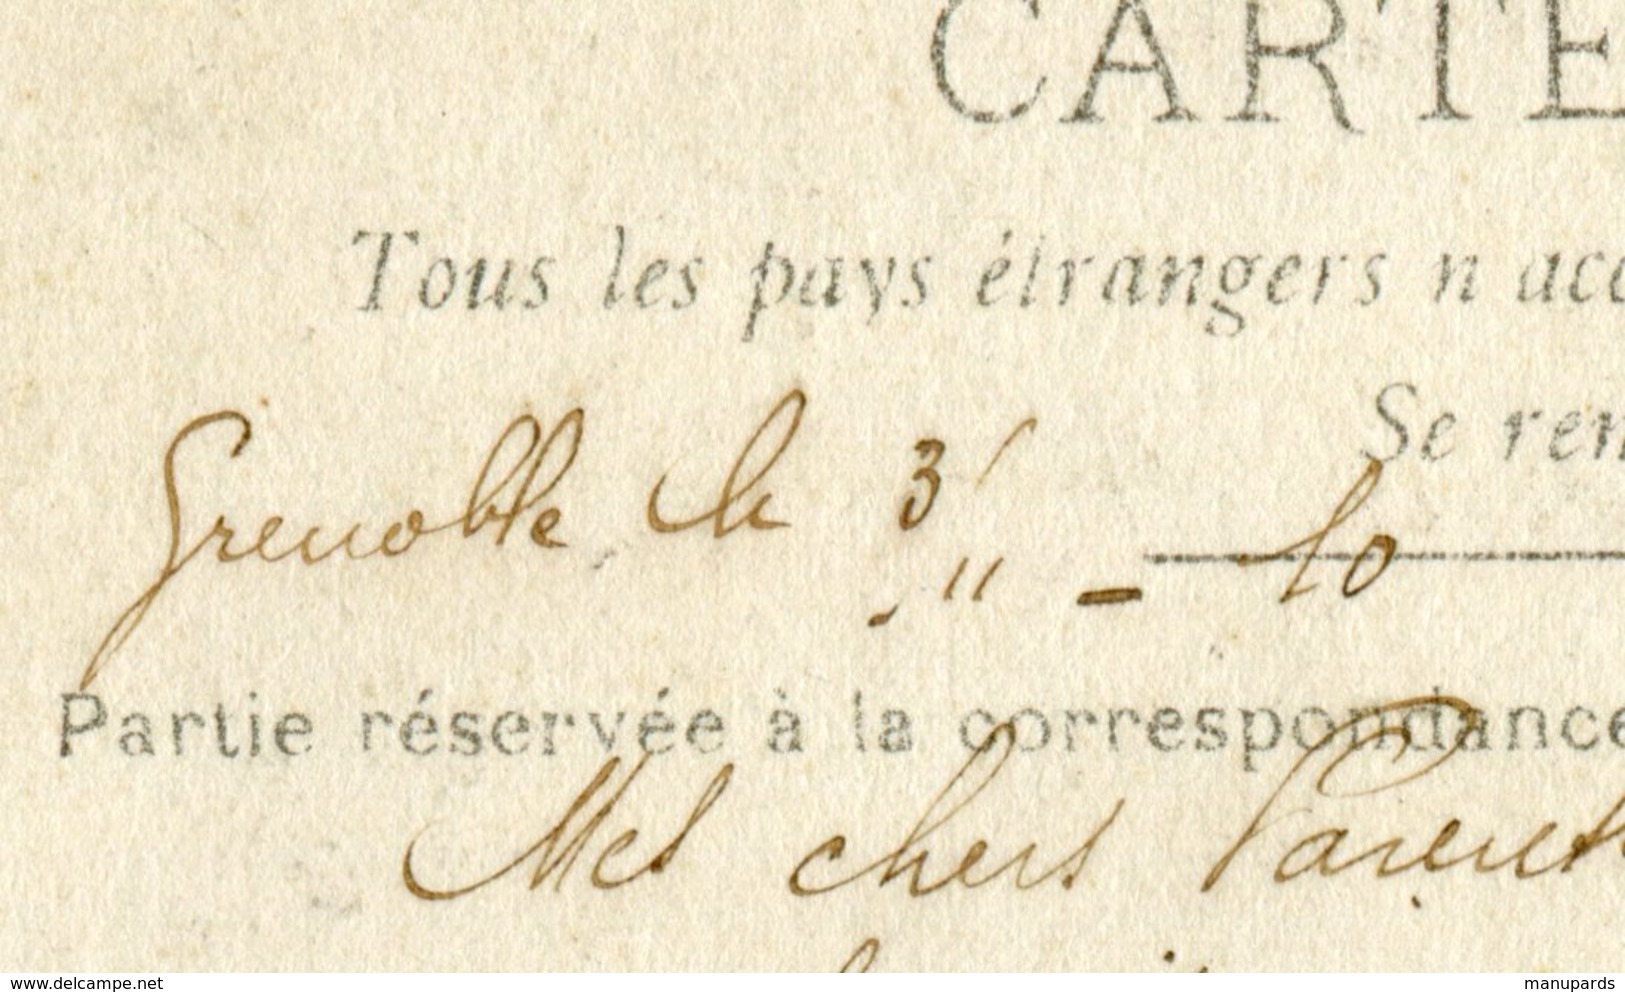 CARTE
Tous les pays étrangers n'acc
Se ren
Grenoble le 3 " - 10
Partie réservée à la correspondance
Mes chers Parents
www.delcampe.net
manupards